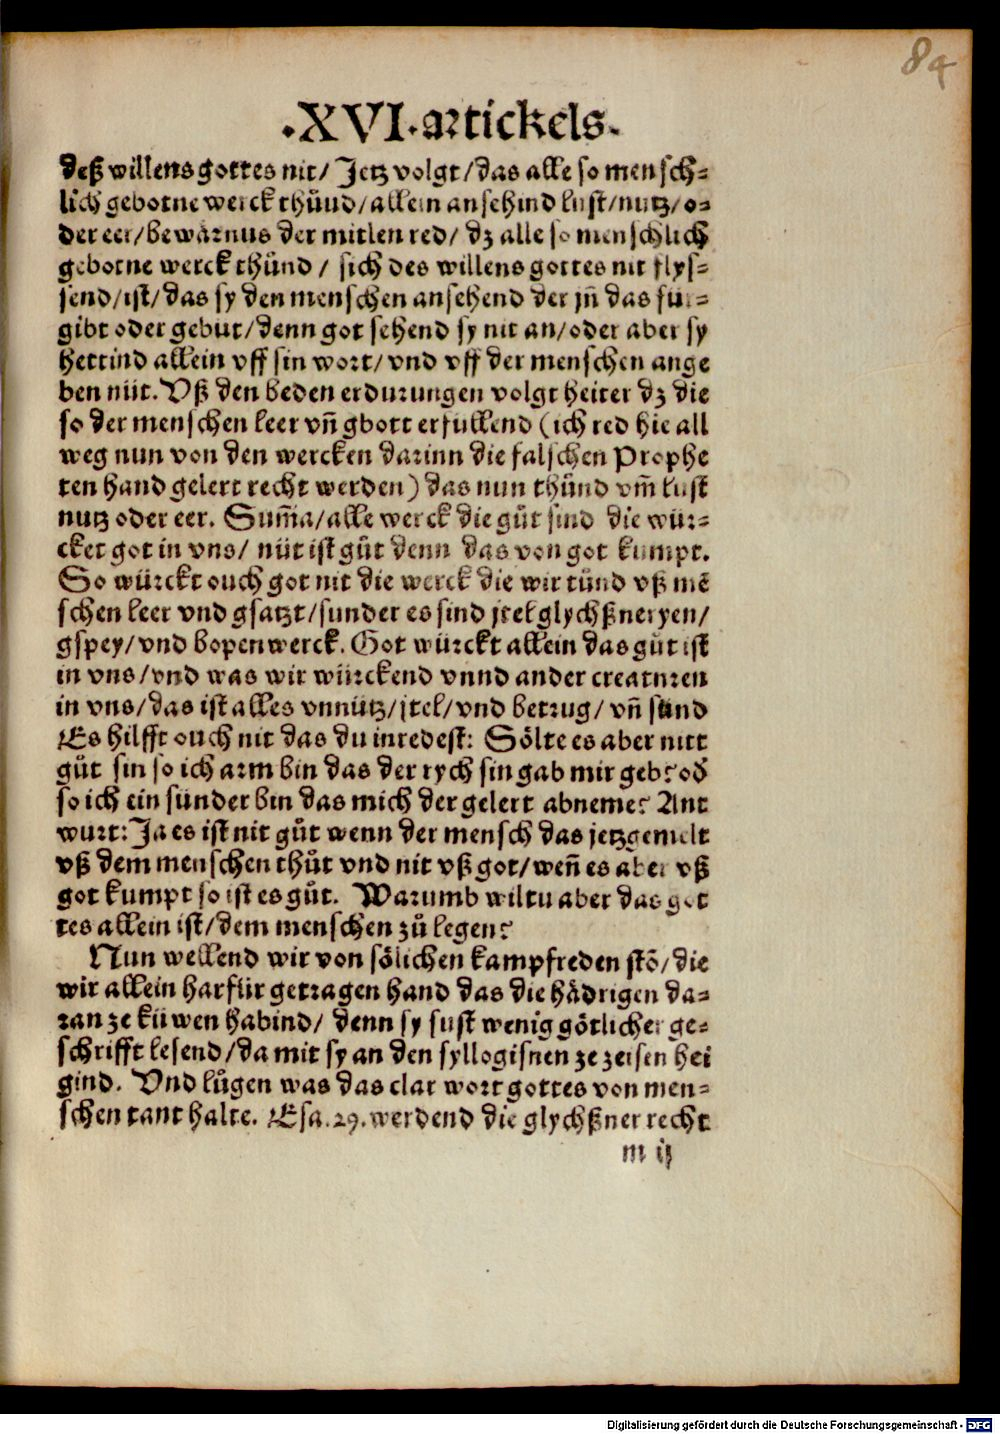 84
.XVI.artickels.
deß willens gottes nit/ Jetz volgt/das alle so mensch-
lich gebotne werck thuͤnd/allein ansehind lust/nutz/o-
der eer/bewaͤrnus der mitlen red/ dz alle so menschlich
gebotne werck thuͤnd / sich des willens gottes nit flys-
send/ist/das sy den menschen ansehend der jn̄ das für-
gibt oder gebüt/denn got sehend sy nit an/oder aber sy
hettind allein vff sin wort/vnd vff der menschen ange
ben nüt. Vß den beden erdurungen volgt heiter dz die
so der menschen leer vn̄ gbott erfüllend (ich red hie all
weg nun von den wercken darinn die falschen Prophe
ten hand gelert recht werden) das nun thuͤnd vm̄ lust
nutz oder eer. Sum̄a/alle werck die guͤt sind die wür-
cket got in vns/ nüt ist guͤt denn das von got kumpt.
So würckt ouch got nit die werck die wir tuͤnd vß mē
schen leer vnd gsatzt/sunder es sind jtel glychßneryen/
gspey/vnd bopenwerck. Got würckt allein das guͤt ist
in vns/vnd was wir würckend vnnd ander creaturen
in vns/das ist alles vnnütz/jtel/vnd betrug/vn̄ sünd
Es hilfft ouch nit das du inredest: Sölte es aber nitt
guͤt sin so ich arm bin das der rych sin gab mir geb? od̄
so ich ein sünder bin das mich der gelert abneme? Ant
wurt: Ja es ist nit guͤt wenn der mensch das jetzgemelt
vß dem menschen thuͤt vnd nit vß got/wen̄ es aber vß
got kumpt so ist es guͤt. Warumb wiltu aber das got
tes allein ist/dem menschen zuͦ legen?
Nun wellend wir von sölichen kampfreden stō/die
wir allein harfür getragen hand das die haͤdrigen da-
ran ze küwen habind/ denn sy sust wenig götlicher ge-
schrifft lesend/da mit sy an den syllogisnen ze zeisen hei
gind. Vnd luͦgen was das clar wort gottes von men-
schen tant halte. Esa.29.werdend die glychßner recht
m ij
Digitalisierung gefördert durch die Deutsche Forschungsgemeinschaft - DFG